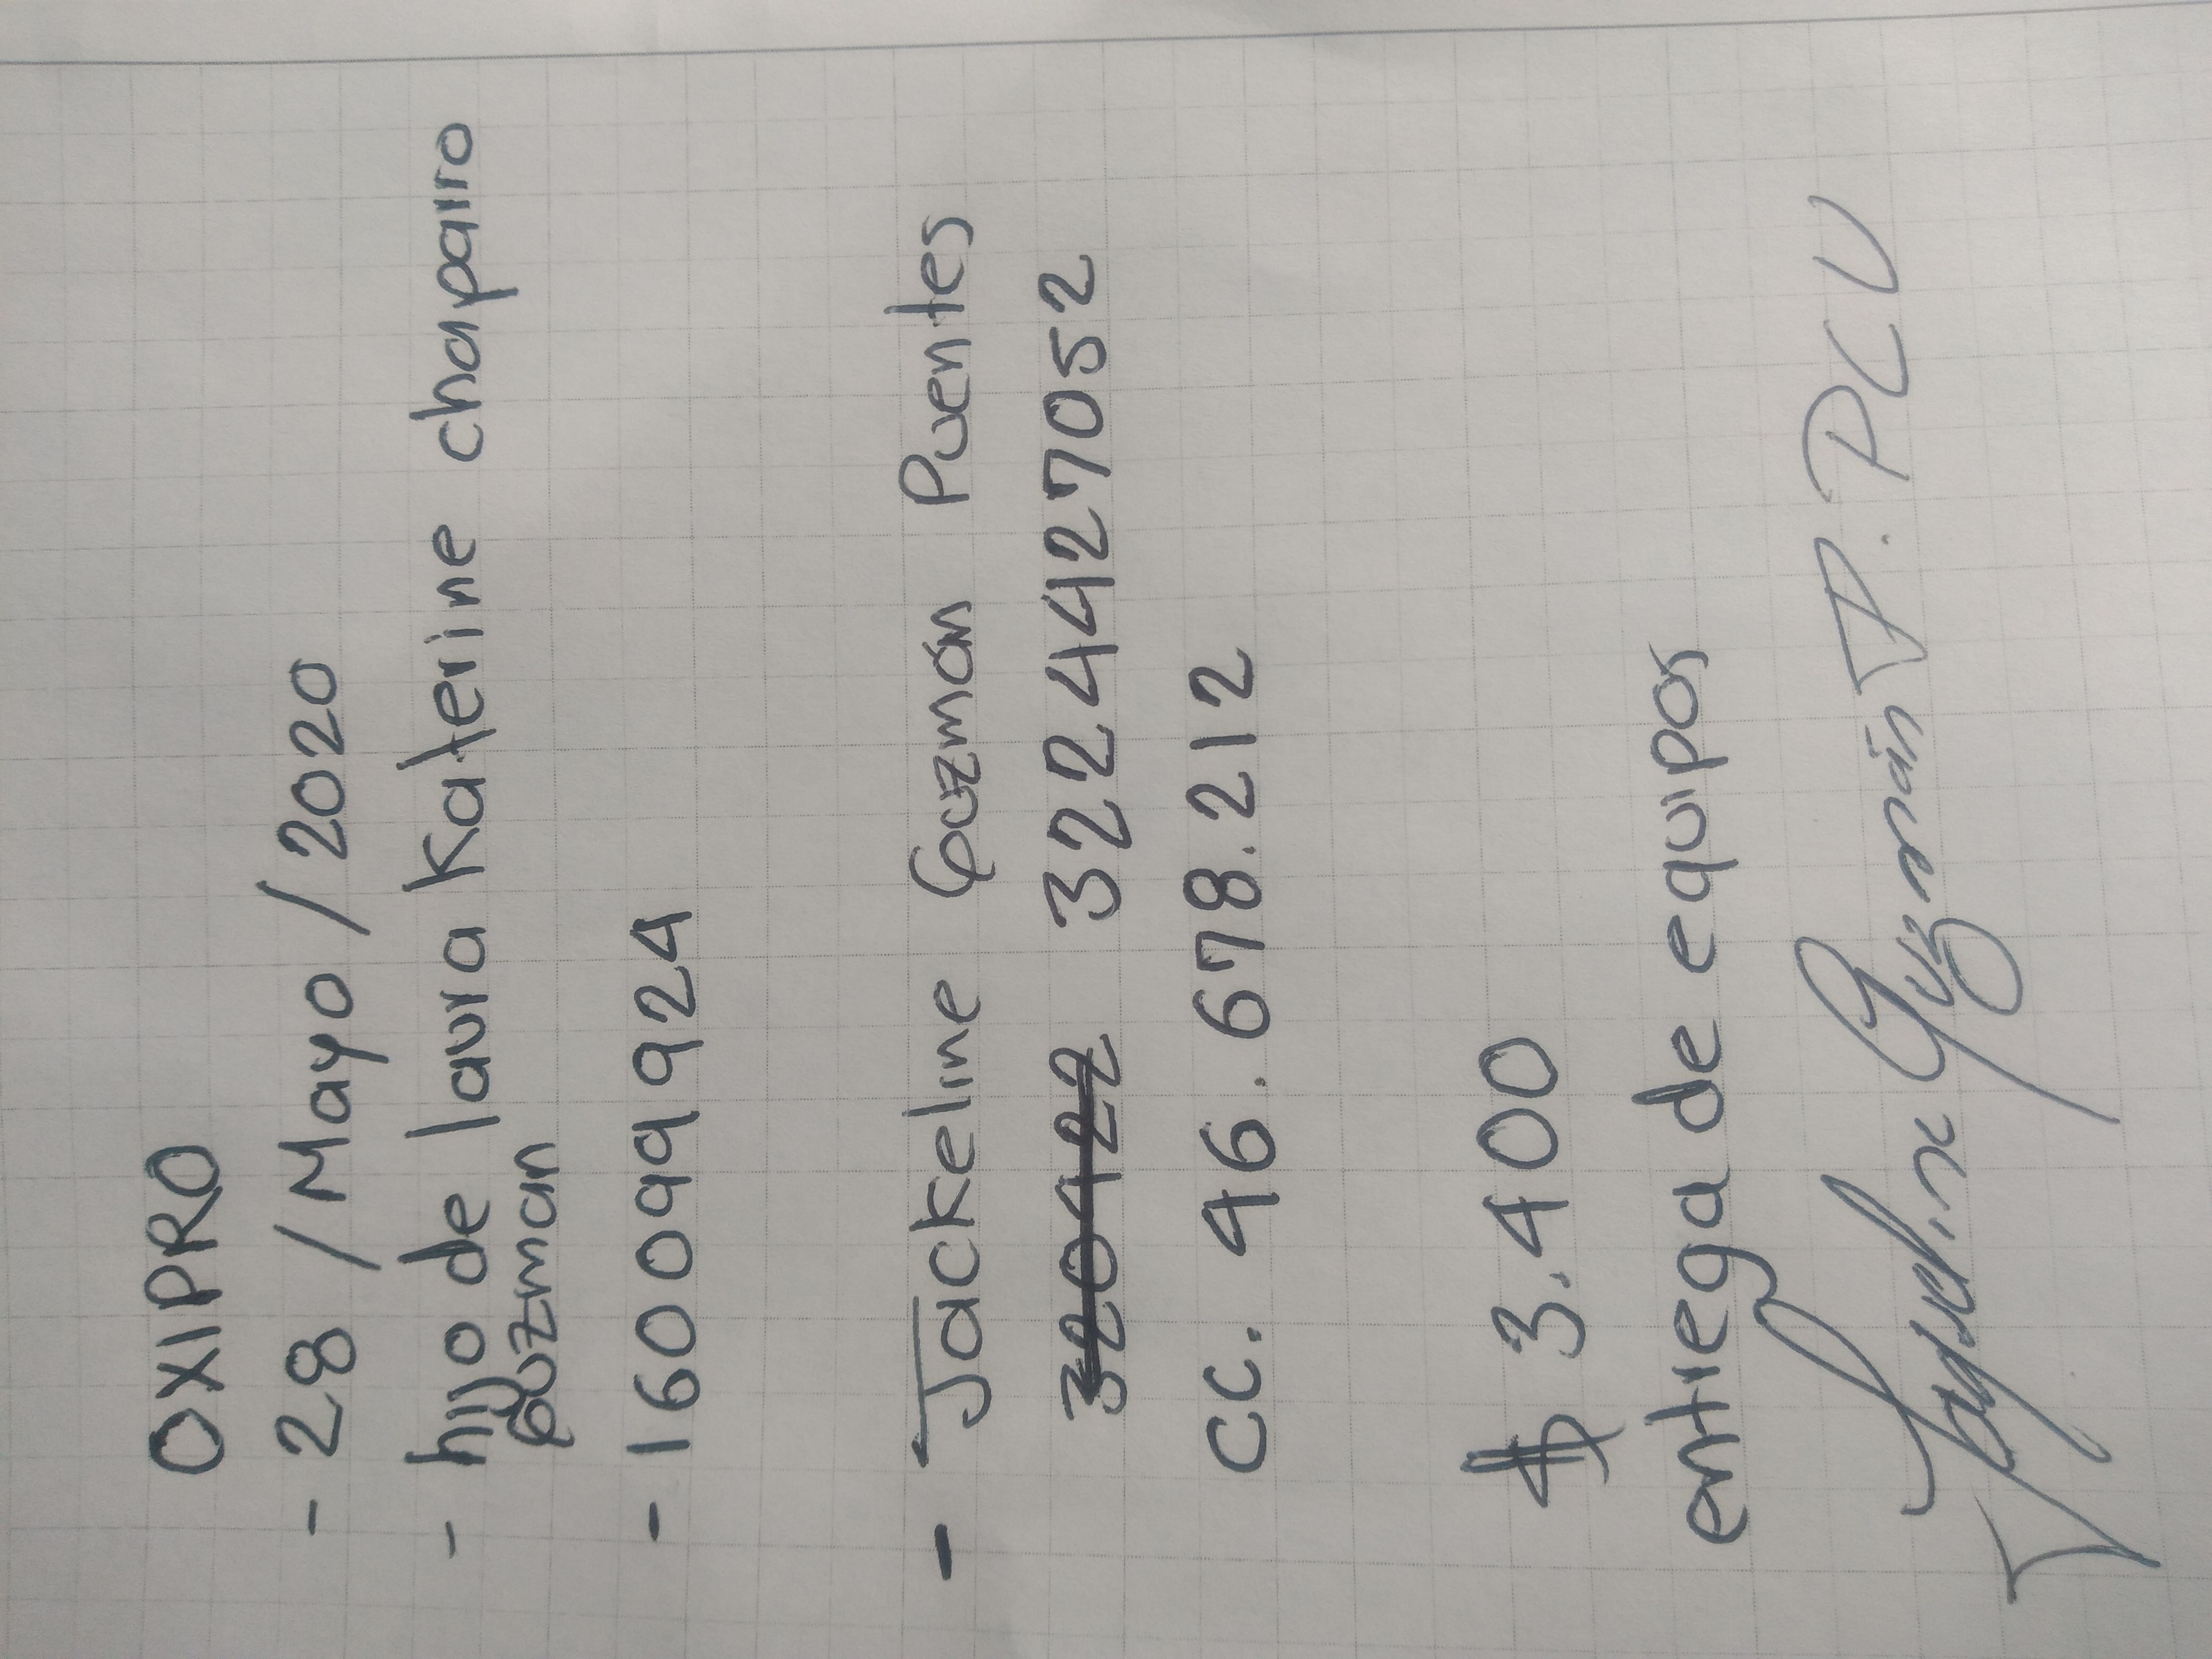 OXIPRO
- 28 / Mayo / 2020
- hijo de laura Katerine chaparro
guzman
- 1600991924
- Jackeline Guzmán Puentes
32042 3224427052
cc. 46.678.212
$ 3.400
entrega de equipos
Jackeline Guzmán P.